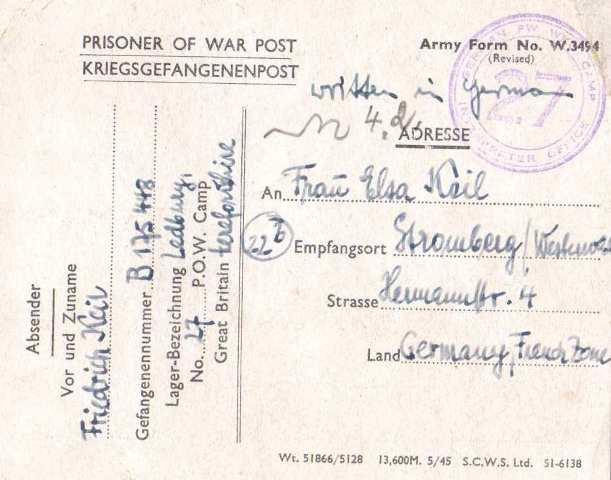 PRISONER OF WAR POST
KRIEGSGEFANGENENPOST
Army Form No. W.3494
(Revised)
GERMAN PW WKG CAMP
27
INTERPRETER OFFICE
written in German
4.2.
ADRESSE
An Frau Elsa Keil
22b
Empfangsort Stromberg/Westerwald
Strasse Hermannstr. 4
Land Germany, French Zone
Absender
Vor und Zuname
Friedrich Keil
Gefangenennummer B 175448
Lager-Bezeichnung Ledbury,
No. 27 P.O.W. Camp
Great Britain Herefordshire
Wt. 51866/5128 13,600M. 5/45 S.C.W.S. Ltd. 51-6138